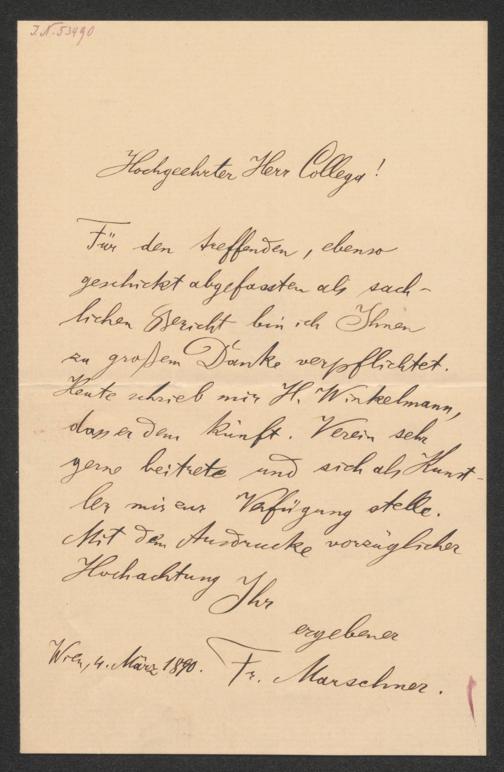 I.N. 53490
Hochgeehrter Herr Collega!
Für den treffenden, ebenso
geschickt abgefassten als sach-
lichen Bericht bin ich Ihnen
zu großem Danke verpflichtet.
Heute schrieb mir H. Winkelmann,
dass er dem künft. Verein sehr
gerne beitrete und sich als Künst-
ler mir zur Verfügung stelle.
Mit dem Ausdrucke vorzüglicher
Hochachtung Ihr
ergebener
Wien, 4. März 1890. Fr. Marschner.